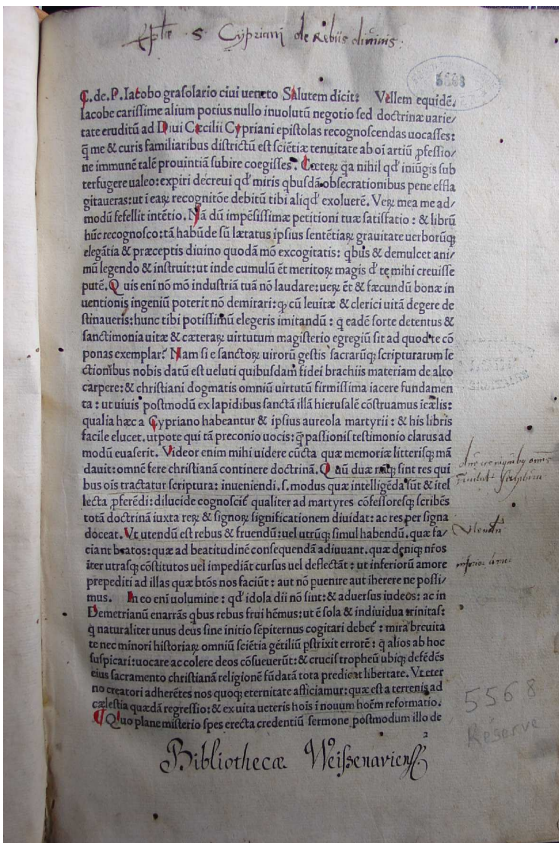 S. Cypriani de Rebus divinis.
5568
C. de. P. Iacobo grasolario ciui ueneto Salutem dicit: Vellem equidē,
Iacobe carissime alium potius nullo inuolutū negotio sed doctrinæ uarie/
tate eruditū ad Diui Cæcilii Cypriani epistolas recognoscendas uocasses:
q̄ me & curis familiaribus districtū est sciētiæ tenuitate ab oī artiū ꝓfessio/
ne immunē talē prouintiā subire coegisses. Cæteꝝ q̄a nihil qd̓ iniūgis sub
terfugere ualeo: expiri decreui qd̓ miris qbusdā obsecrationibus pene effla
gitaueras: ut i eaꝝ recognitōe debitū tibi aliqd̓ exoluerē. Veꝝ mea me ad/
modū fefellit intētio. Nā dū impēsissimæ petitioni tuæ satisfatio: & librū
hūc recognosco: tā habūde sū lætatus ipsius sentētiaꝝ grauitate uerborūqꝫ
elegātia & præceptis diuino quodā mō excogitatis: qbus & demulcet ani/
mū legendo & instruit: ut inde cumulū ēt meritoꝝ magis d̓ te mihi creuisse
putē. Quis eni nō mō industriā tuā nō laudare: ueꝝ ēt & fæcundū bonæ in
uentionis ingeniū poterit nō demirari: qꝫ cū leuitæ & clerici uitā degere de
stinaueris: hunc tibi potissimū elegeris imitandū: q eadē sorte detentus &
sanctimonia uitæ & cæteraꝝ uirtutum magisterio egregiū sit ad quod te cō
ponas exemplar? Nam si e sanctoꝝ uiroꝝ gestis sacrarūqꝫ scripturarum le
ctionibus nobis datū est ueluti quibusdam fidei brachiis materiam de alto
carpere: & christiani dogmatis omniū uirtutū firmissima iacere fundamen
ta: ut uiuis postmodū ex lapidibus sanctā illā hierusalē cōstruamus ī cælis:
qualia hæc a Cypriano habeantur & ipsius aureola martyrii: & his libris
facile elucet. utpote qui tā preconio uocis: qꝫ passionis testimonio clarus ad
modū euaserit. Videor enim mihi uidere cūcta quæ memoriæ litterisqꝫ mā
dauit: omnē fere christianā continere doctrinā. Q̄ aū duæ reꝝ sint res qui
bus ois tractatur scriptura: inueniendi. s. modus quæ intelligēda sūt & itel
lecta ꝓferēdi: dilucide cognoscit̄ qualiter ad martyres cōfessoresqꝫ scribēs
totā doctrinā iuxta reꝝ & signoꝝ significationem diuidat: ac res per signa
doceat. Vt utendū est rebus & fruendū: uel utrūqꝫ simul habendū. quæ fa/
ciant beatos: quæ ad beatitudinē consequendā adiuuant. quæ deniqꝫ nr̄os
iter utrasqꝫ cōstitutos uel impediāt cursus uel deflectāt: ut inferiorū amore
prepediti ad illas quæ btōs nos faciūt: aut nō puenire aut iherere ne possi/
mus. In eo eni uolumine: qd̓ idola dii nō sint: & aduersus iudeos: ac in
Demetrianū enarrās qbus rebus frui hēmus: ut ē sola & indiuidua trinitas:
q naturaliter unus deus sine initio sēpiternus cogitari debet: mira breuita
te nec minori historiaꝝ omniū sciētia gētiliū pstrixit errorē: q alios ab hoc
suspicari: uocare ac colere deos cōsueuerūt: & crucis tropheū ubiqꝫ defēdēs
eius sacramento christianā religionē fūdatā tota predicat libertate. Vt eter
no creatori adherētes nos quoqꝫ eternitate afficiamur: quæ est a terrenis ad
cælestia quædā regressio: & ex uita ueteris hois i nouum hoēm reformatio.
Quo plane misterio spes erecta credentiū sermone postmodum illo de
2
5568
Réserve
Bibliothecæ Weissenaviens.